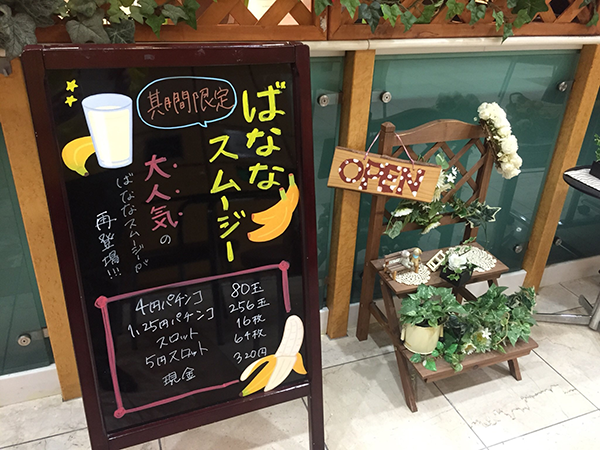 ばなな
スムージー
期間限定
大人気の
ばななスムージーが
再登場!!!
4円パチンコ 80玉
1,25円パチンコ 256玉
スロット 16枚
5円スロット 64枚
現金 320円
OPEN